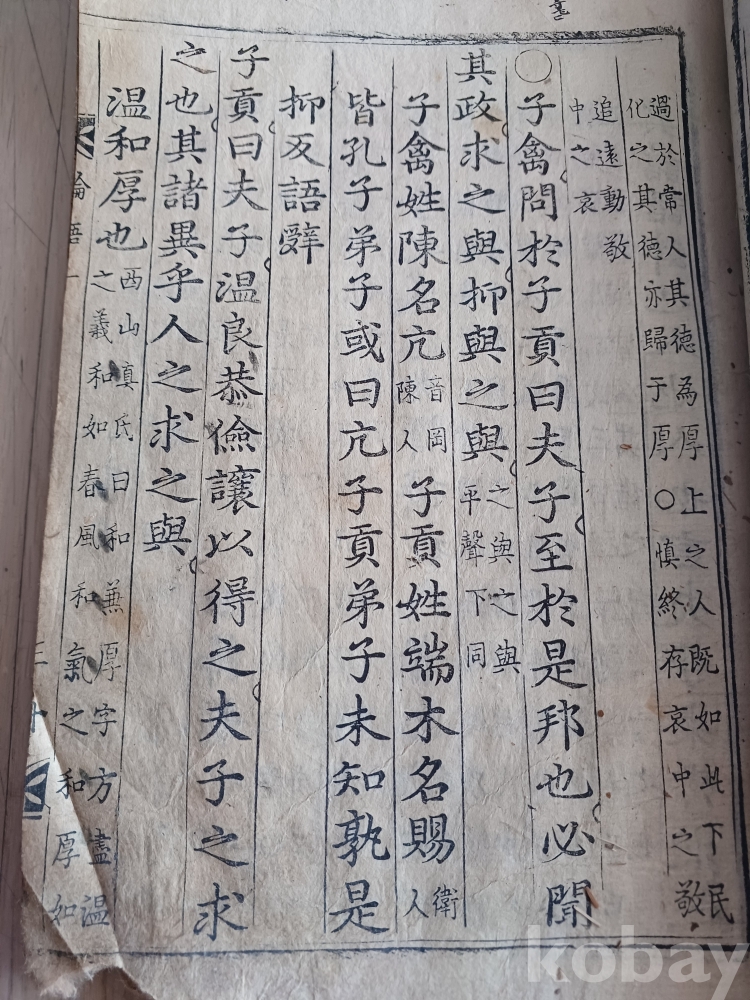 過於常人其德為厚上之人既如此下民
化之其德亦歸于厚○慎終存哀中之敬
追遠動敬
中之哀
○子禽問於子貢曰夫子至於是邦也必聞
其政求之與抑與之與之與之與平聲下同
子禽姓陳名亢音岡陳人子貢姓端木名賜衛人
皆孔子弟子或曰亢子貢弟子未知孰是
抑反語辭
子貢曰夫子温良恭儉讓以得之夫子之求
之也其諸異乎人之求之與
温和厚也西山真氏曰和兼厚字方盡温之義和如春風和氣之和厚如
論語一 三十
kobay